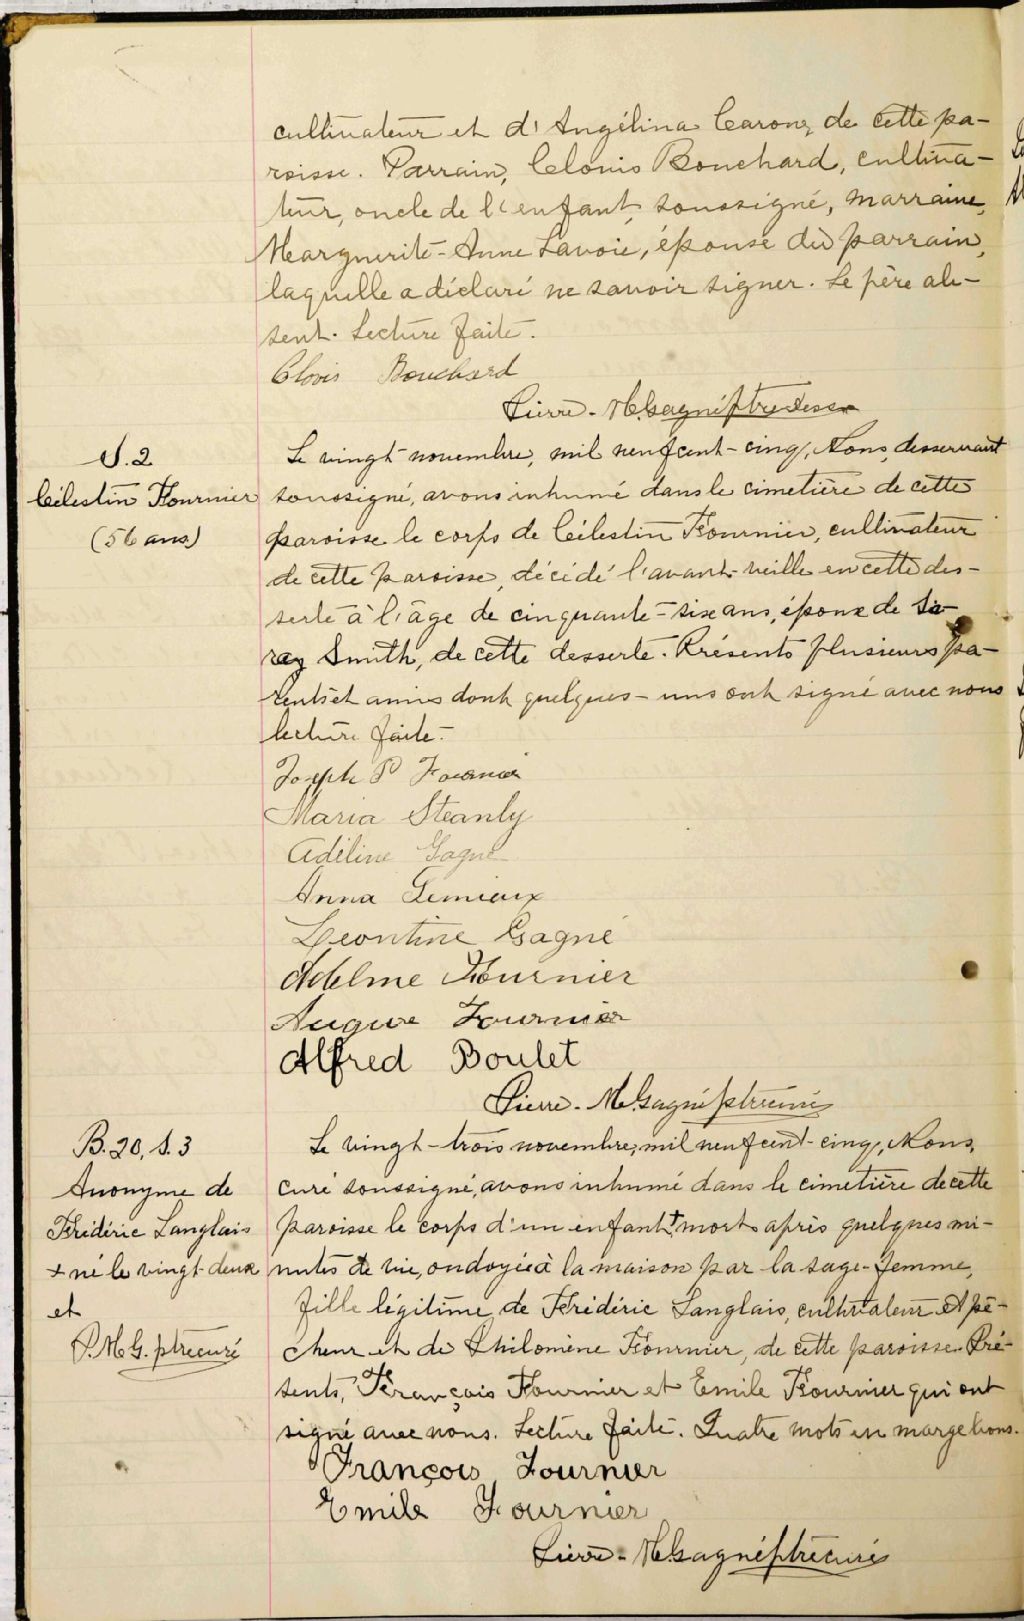 cultivateur et d'Angélina Caron, de cette pa-
roisse. Parrain, Clovis Bouchard, cultiva-
teur, oncle de l'enfant, soussigné, marraine,
Marguerite-Anne Lavoie, épouse du parrain,
laquelle a déclaré ne savoir signer. Le père ab-
sent. Lecture faite.
Clovis Bouchard
Pierre-M. Gagné ptre dess.
S.2
Célestin Fournier
(56 ans)
Le vingt novembre, mil neuf cent-cinq, Nous, desservant
soussigné, avons inhumé dans le cimetière de cette
paroisse le corps de Célestin Fournier, cultivateur
de cette paroisse, décédé l'avant-veille en cette des-
serte à l'âge de cinquante-six ans, époux de Sa-
ray Smith, de cette desserte. Présents plusieurs pa-
rents et amis dont quelques-uns ont signé avec nous
lecture faite.
Joseph P Fournier
Maria Steanly
Adéline Gagné
Anna Lemieux
Leontine Gagné
Adelme Fournier
Fournier
Alfred Boulet
Pierre-M. Gagné ptre curé
B.20, S.3
Anonyme de
Frédéric Langlais
+ né le vingt-deux
et
P.M.G. ptre curé
Le vingt-trois novembre, mil neuf cent-cinq, Nous,
curé soussigné, avons inhumé dans le cimetière de cette
paroisse le corps d'un enfant + mort après quelques mi-
nutes de vie, ondoyée à la maison par la sage-femme,
fille légitime de Frédéric Langlais, cultivateur et pê-
cheur et de Philomène Fournier, de cette paroisse. Pré-
sents, François Fournier et Emile Fournier qui ont
signé avec nous. Lecture faite. Quatre mots en marge bons.
François Fournier
Emile Fournier
Pierre-M. Gagné ptre curé